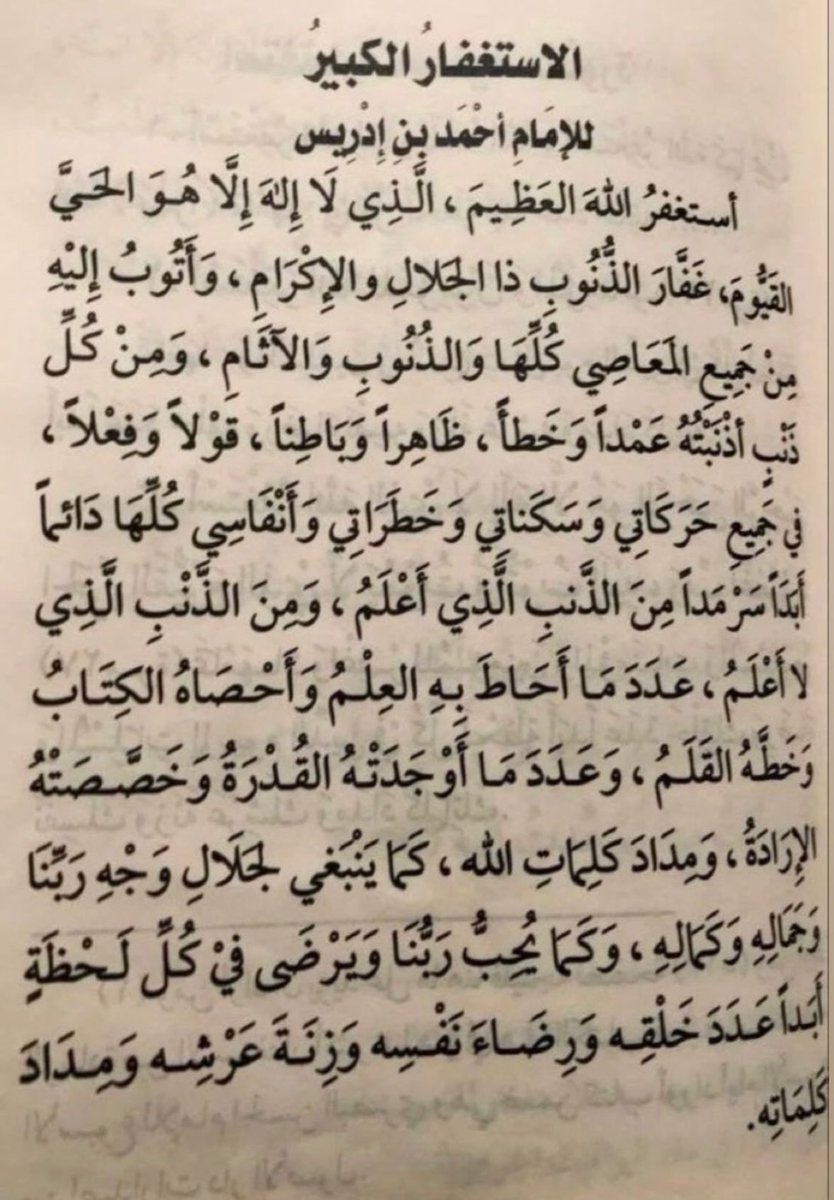 الاستغفارُ الكبيرُ
للإمَامِ أحْمَد بِنِ إدْرِيس
أستغفرُ اللهَ العَظِيمَ ، الَّذِي لَا إِلٰهَ إِلَّا هُوَ الحَيَّ
القَيُّومَ، غَفَّارَ الذُّنُوبِ ذا الجَلالِ والإِكْرَامِ ، وَأَتُوبُ إِلَيْهِ
مِنْ جَمِيعِ المَعَاصِي كُلِّهَا وَالذُنُوبِ وَالآثَامِ ، وَمِنْ كُلِّ
ذَنْبٍ أذْنَبْتُهُ عَمْداً وَخَطأً ، ظَاهِراً وَبَاطِناً ، قوْلاً وَفِعْلاً ،
في جَمِيعِ حَرَكَاتي وَسَكَناتي وَخَطَرَاتي وَأَنْفَاسِي كُلِّهَا دَائماً
أبَدَاً سَرْمَداً مِنَ الذَّنبِ الَّذِي أَعْلَمُ ، وَمِنَ الذَّنْبِ الَّذِي
لا أَعْلَمُ ، عَدَدَ مَا أَحَاطَ بِهِ العِلْمُ وَأَحْصَاهُ الكِتَابُ
وَخَطَّهُ القَلَمُ ، وَعَدَدَ مَا أَوْجَدَتْهُ القُدْرَةُ وَخَصَّصَتْهُ
الإِرَادَةُ ، وَمِدَادَ كَلِمَاتِ الله ، كَمَا يَنْبَغي لجَلَالِ وَجْهِ رَبِّنَا
وَجَمَالِهِ وَكَمَالِهِ ، وَكَمَا يُحِبُّ رَبُّنَا وَيَرْضَى فيْ كُلِّ لَحْظَةٍ
أَبَداً عَدَدَ خَلْقِه وَرِضَاءَ نَفْسِه وَزِنَةَ عَرْشِه وَمِدَادَ
كَلِمَاتِه.